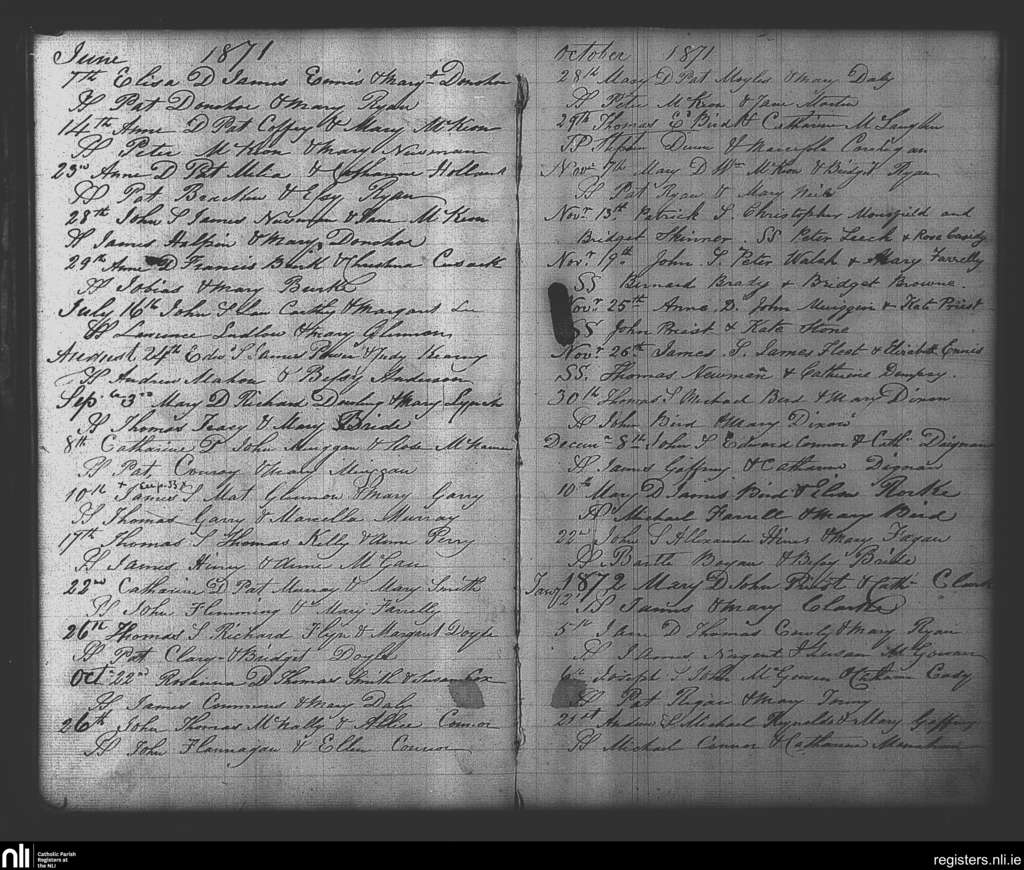 June 1871
7th Elisa D James Ennis & Mary Donohoe
SS Pat Donohoe & Mary Ryan
14th Anne D Pat Coffey & Mary McKeon
SS Peter McKeon & Mary Newman
23rd Anne D Pat Melia & Holland
SS Pat & Ryan
28th John S James Newman & Jane McKeon
SS James Halpin & Mary Donohoe
29th Anne D Francis & Christina Cusack
SS Tobias & Mary Burke
July 16th John S & Margaret
SS Laurence Ludlow & Mary
August 24th Edw S James Power & Judy Kearny
SS Andrew Mahon & Betsy Anderson
Sep. 3rd Mary D Richard Dowling & Mary Lynch
SS Thomas & Mary Bride
8th Catharine D John Muggan & Rose McKenna
SS Pat Conroy & Mary Muggan
10th James S Mat Glennon & Mary Garry
SS Thomas Garry & Marcella Murray
17th Thomas S Thomas Kelly & Anne Perry
SS James Hiney & Anne McGan
22nd Catharine D Pat Murray & Mary Smith
SS John Flemming & Mary Farrelly
26th Thomas S Richard Flyn & Margaret Doyle
SS Pat Clary & Bridget Doyle
Oct. 22nd Rosanna D Thomas Smith & Susan Cox
SS James Commons & Mary Daly
26th John Thomas McNally & Connor
SS John Flannagan & Ellen Connor
October 1871
28th Mary D Pat Moyles & Mary Daly
SS Peter McKeon & Jane
29th Thomas E Bird & Catharine McLaughlin
SP Stephen Dunn &
Novr 7th Mary D Wm McKeon & Bridget Ryan
SS Pat Ryan & Mary
Novr 13th Patrick S. Christopher Monsfield and
Bridget Skinner. SS Peter Leech & Rose Cassidy
Novr 19th John S. Peter Walsh & Mary Farrelly
SS Bernard Brady & Bridget Browne.
Novr 25th Anne. D. John Muggan & Kate Priest
SS John Priest & Kate Stone
Novr 26th James S. James Fleet & Elizabeth Ennis
SS. Thomas Newman & Catherine Dempsy.
30th Thomas S Michael Bird & Mary Dixon
SS John Bird & Mary Dixon
Decemr 8th John S Edward Connor & Cath Daignan
SS James Gaffney & Catharine Dignan
10th Mary D James Bird & Elisa Rorke
SS Michael Farrell & Mary Bird
22nd John S Alexander Hines & Mary Fagan
SS Bartle Bogan & Betsy Bride
Jany 1872 Mary D John & Cath Clark
2 SS James & Mary Clarke
5th Jane D Thomas & Mary Ryan
SS James Nugent & Susan McGowan
6th Joseph S John McGowan & Catharine Cody
SS Pat & Mary
21st Andrew S Michael Reynolds & Mary Gaffney
SS Michael Connor & Catharine Monahan
nli Catholic Parish
Registers at
the NLI
registers.nli.ie